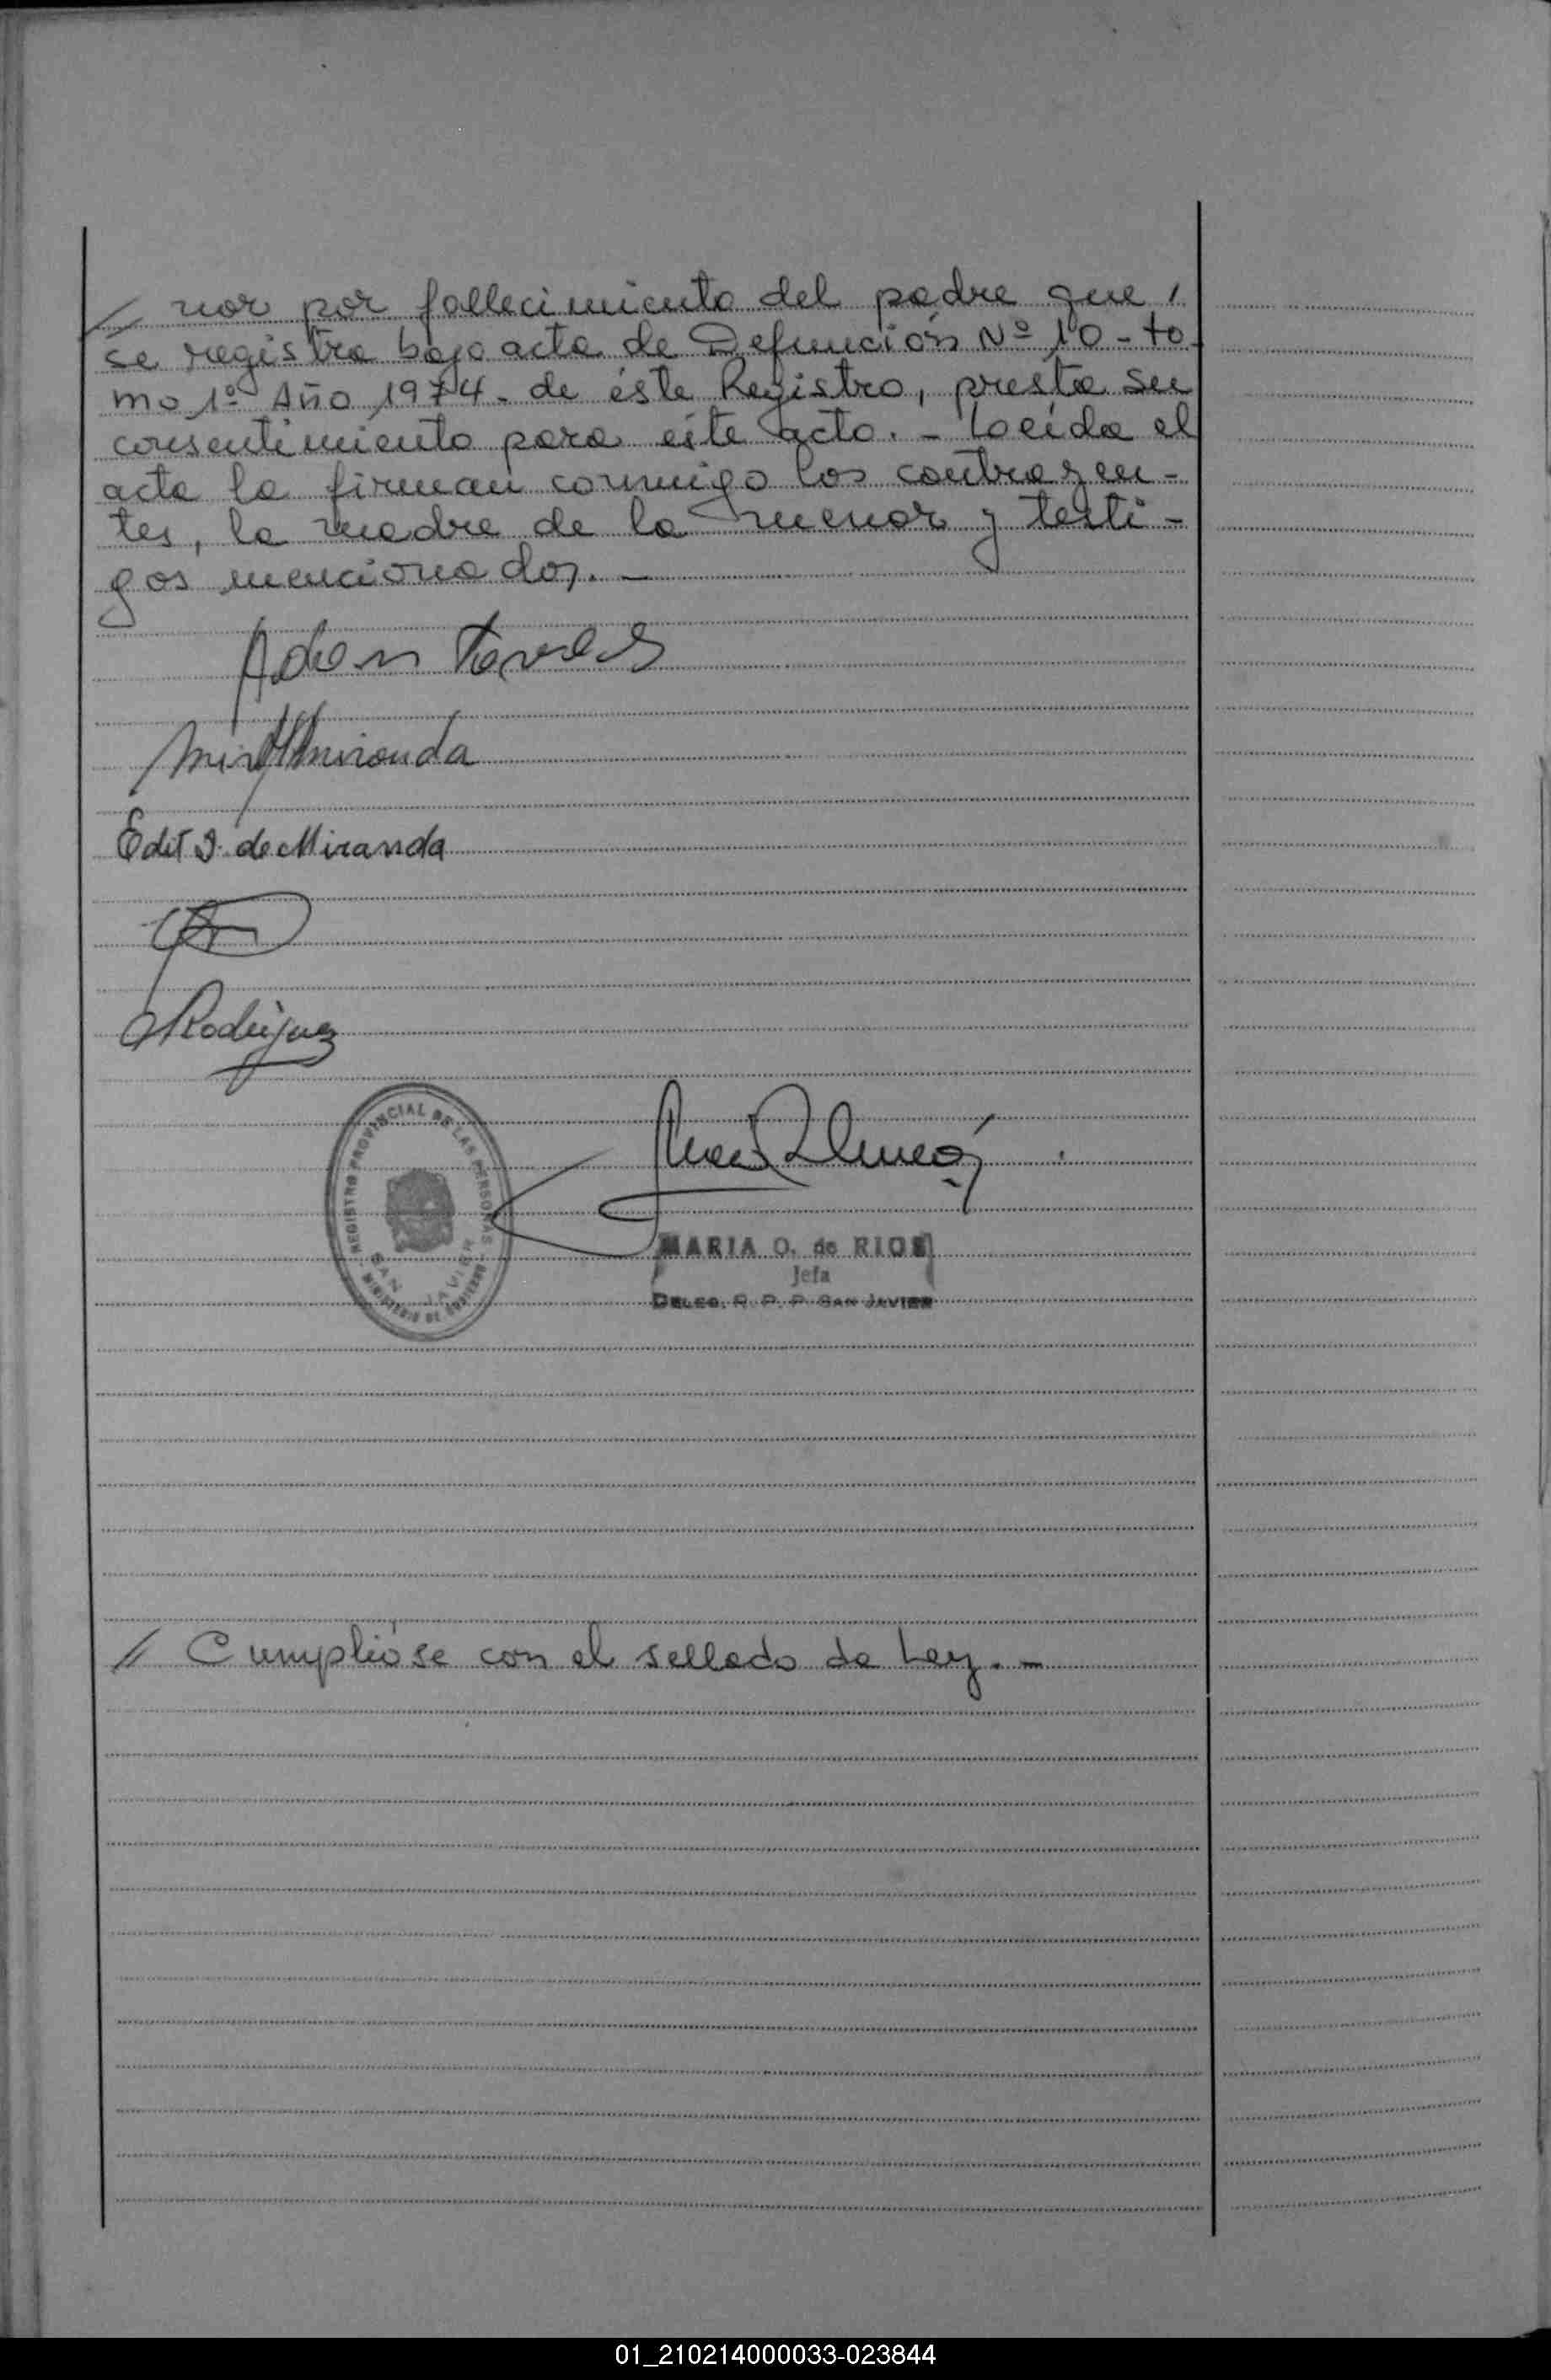 // nor por fallecimiento del padre que,
se registra bajo acta de Defunción Nº 10 - to-
mo 1º Año 1974 - de éste Registro, presta su
consentimiento para este acto. - Loeída el
acta la firman conmigo los contrayen-
tes, la madre de la menor y testi-
gos mencionados. -
Miranda
Edit I. de Miranda
Rodriguez
REGISTRO PROVINCIAL DE LAS PERSONAS
SAN JAVIER
MINISTERIO DE GOBIERNO
MARIA O. de RIOS
Jefa
DELEG. R. P. P. SAN JAVIER
// Cumplióse con el sellado de Ley. -
01_210214000033-023844